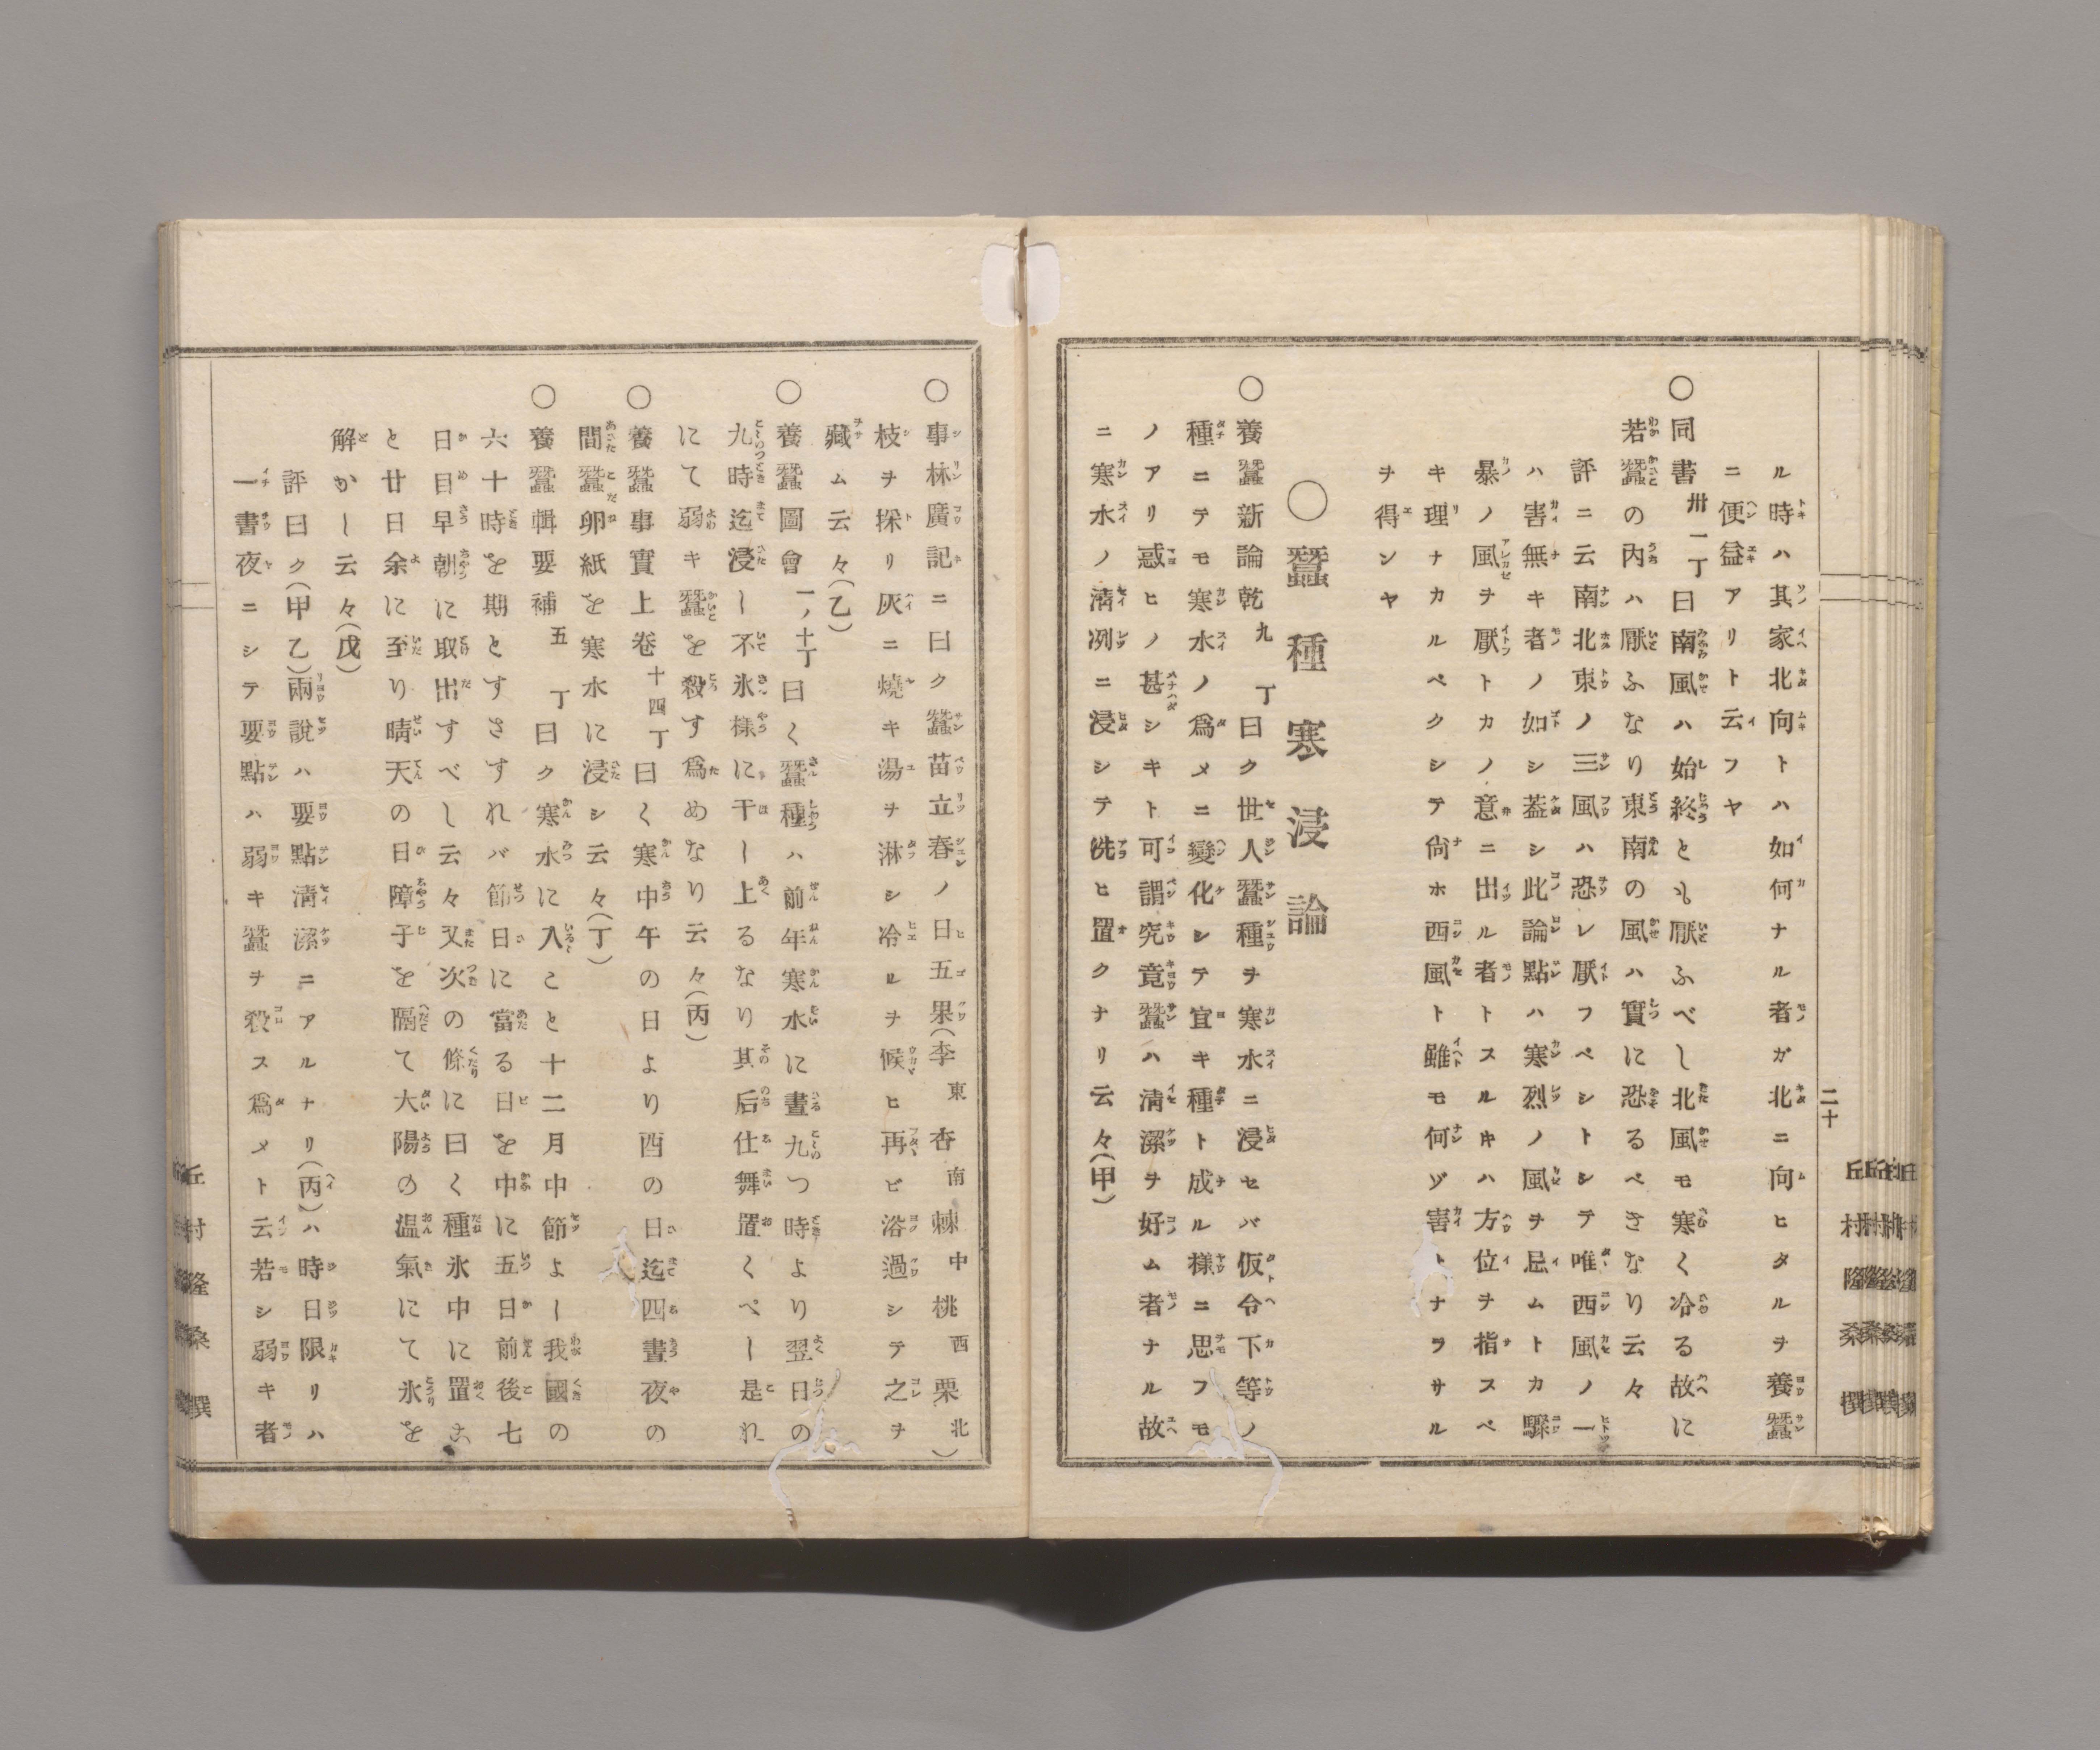 ル時ハ其家北向トハ如何ナル者ガ北ニ向ヒタルヲ養蠶
ニ便益アリト云フヤ
〇同書卅一丁曰南風ハ始終とも厭ふべし北風モ寒く冷る故に
若蠶の内ハ厭ふなり東南の風ハ實に恐るべきなり云々
評ニ云南北東ノ三風ハ恐レ厭フベシトシテ唯西風ノ一
ハ害無キ者ノ如シ蓋シ此論點ハ寒烈ノ風ヲ忌ムトカ驟
暴ノ風ヲ厭トカノ意ニ出ル者トスルキハ方位ヲ指スベ
キ理ナカルベクシテ尙ホ西風ト雖モ何ゾ害トナラサル
ヲ得ンヤ
〇蠶種寒浸論
〇養蠶新論乾九丁曰ク世人蠶種ヲ寒水ニ浸セバ仮令下等ノ
種ニテモ寒水ノ爲メニ變化シテ宜キ種ト成ル樣ニ思フモ
ノアリ惑ヒノ甚シキト可謂究竟蠶ハ清潔ヲ好ム者ナル故
ニ寒水ノ淸冽ニ浸シテ洗ヒ置クナリ云々(甲)
二十
〇事林廣記ニ曰ク蠶苗立春ノ日五果(李東杏南棘中桃西栗北)
枝ヲ採リ灰ニ燒キ湯ヲ淋シ冷ルヲ候ヒ再ビ浴過シテ之ヲ
藏ム云々(乙)
〇養蠶圖會一ノ十丁曰く蠶種ハ前年寒水に晝九つ時より翌日の
九時迄浸し不氷樣に干し上るなり其后仕舞置くべし是れ
にて弱キ蠶を殺す爲めなり云々(丙)
〇養蠶事實上卷十四丁曰く寒中午の日より酉の日迄四晝夜の
間蠶卵紙を寒水に浸シ云々(丁)
〇養蠶輯要補五丁曰ク寒水に入こと十二月中節よし我國の
六十時を期とすさすれバ節日に當る日を中に五日前後七
日目早朝に取出すべし云々又次の條に曰く種氷中に置こ
と廿日余に至り晴天の日障子を隔て大陽の温氣にて氷を
解かし云々(戊)
評曰ク(甲乙)兩說ハ要點淸潔ニアルナリ(丙)ハ時日限リハ
一晝夜ニシテ要點ハ弱キ蠶ヲ殺ス爲メト云若シ弱キ者
丘村隆桑撰